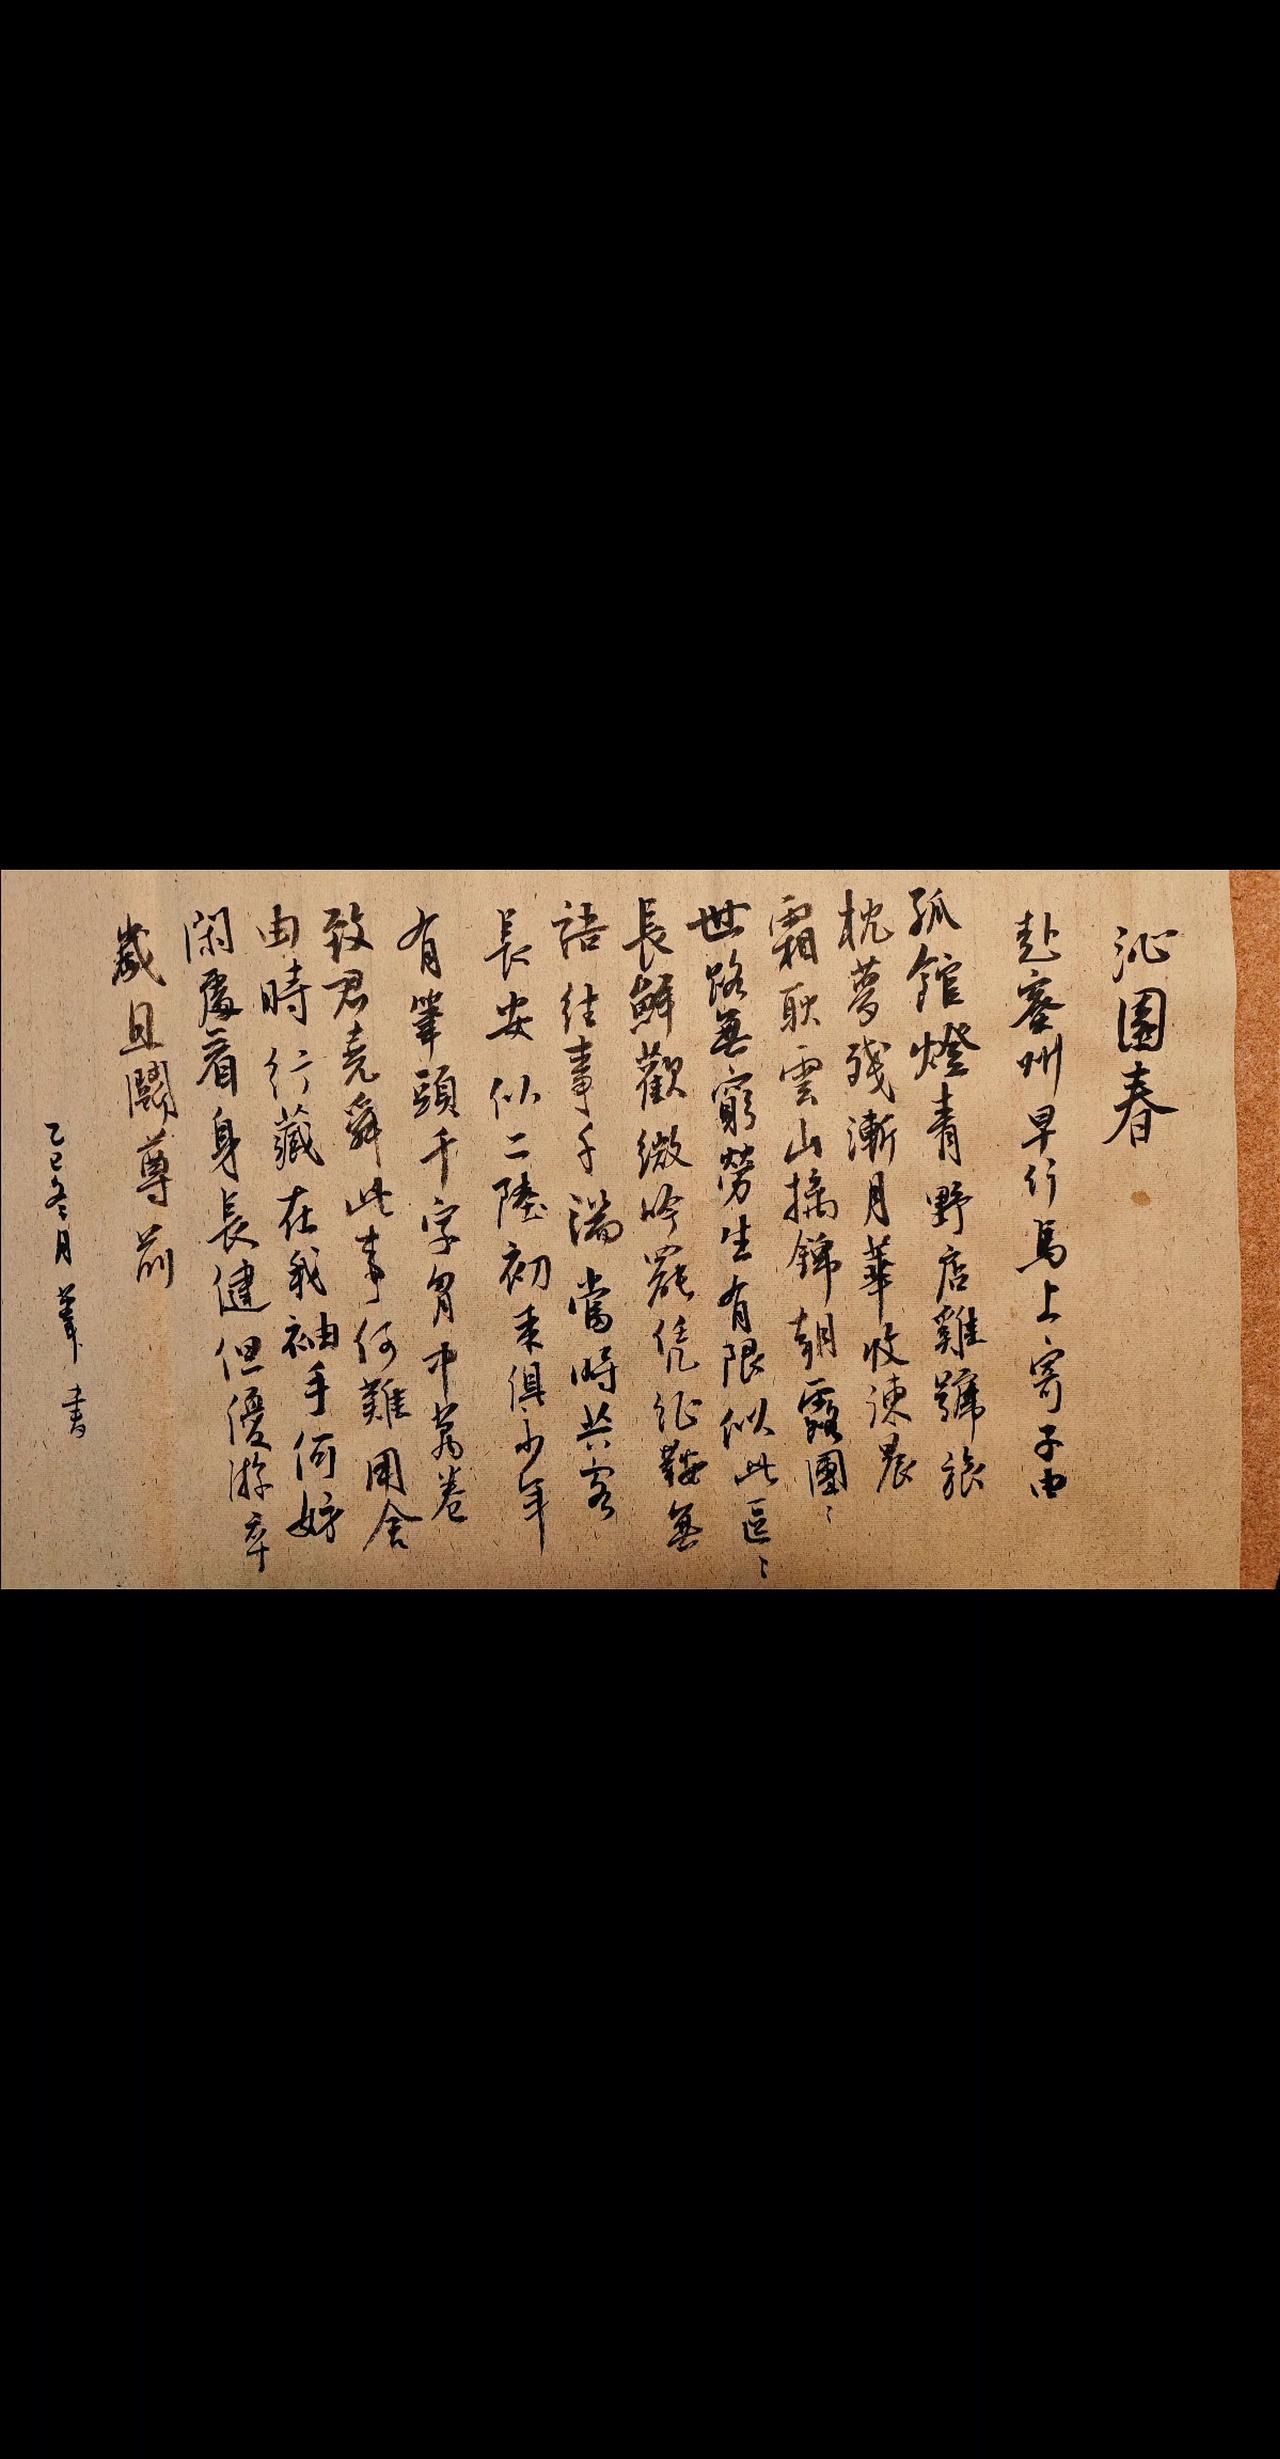 沁園春
赴密州早行馬上寄子由
孤館燈青野店雞號旅
枕夢殘漸月華收練晨
霜耿雲山摛錦朝露團〻
世路無窮勞生有限似此區〻
長鮮歡微吟罷凭征鞍無
語往事千端當時共客
長安似二陸初來俱少年
有筆頭千字胷中萬卷
致君堯舜此事何難用舍
由時行藏在我袖手何妨
閑處看身長健但優游卒
歲且鬬尊前
乙巳冬月 書